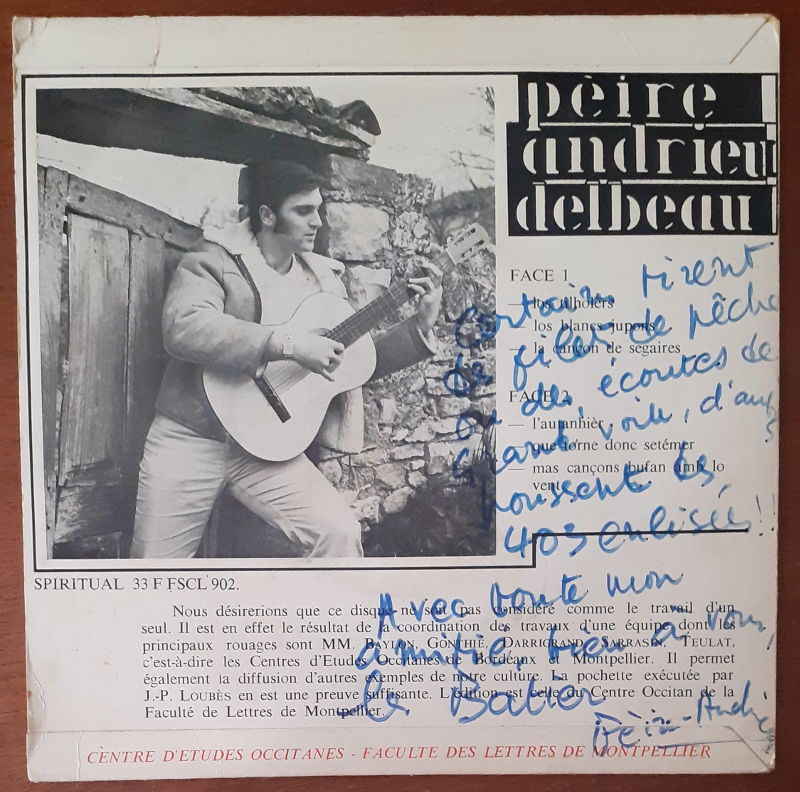 pèire
andrieu
delbeau
FACE 1
— los tilholèrs
— los blancs jupons
— la cançon de segaires
FACE 2
— l'autanhièr
— que torne donc setémer
— mas cançons bufan amb lo
vent
Certain tirent
des filets de pêche
ou des écoutes de
grand voile, d'autres
poussent des
403 enlisées!!
SPIRITUAL 33 F FSCL 902.
Avec toute mon
amitié bien à vous,
Le Batier
Pèir-Andrieu
Nous désirerions que ce disque ne soit pas considéré comme le travail d'un
seul. Il est en effet le résultat de la coordination des travaux d'une équipe dont les
principaux rouages sont MM. BAYLON, GONTHIÉ, DARRIGRAND, SARRASIN, TEULAT,
c'est-à-dire les Centres d'Etudes Occitanes de Bordeaux et Montpellier. Il permet
également la diffusion d'autres exemples de notre culture. La pochette exécutée par
J.-P. LOUBÈS en est une preuve suffisante. L'édition est celle du Centre Occitan de la
Faculté de Lettres de Montpellier.
CENTRE D'ETUDES OCCITANES - FACULTE DES LETTRES DE MONTPELLIER